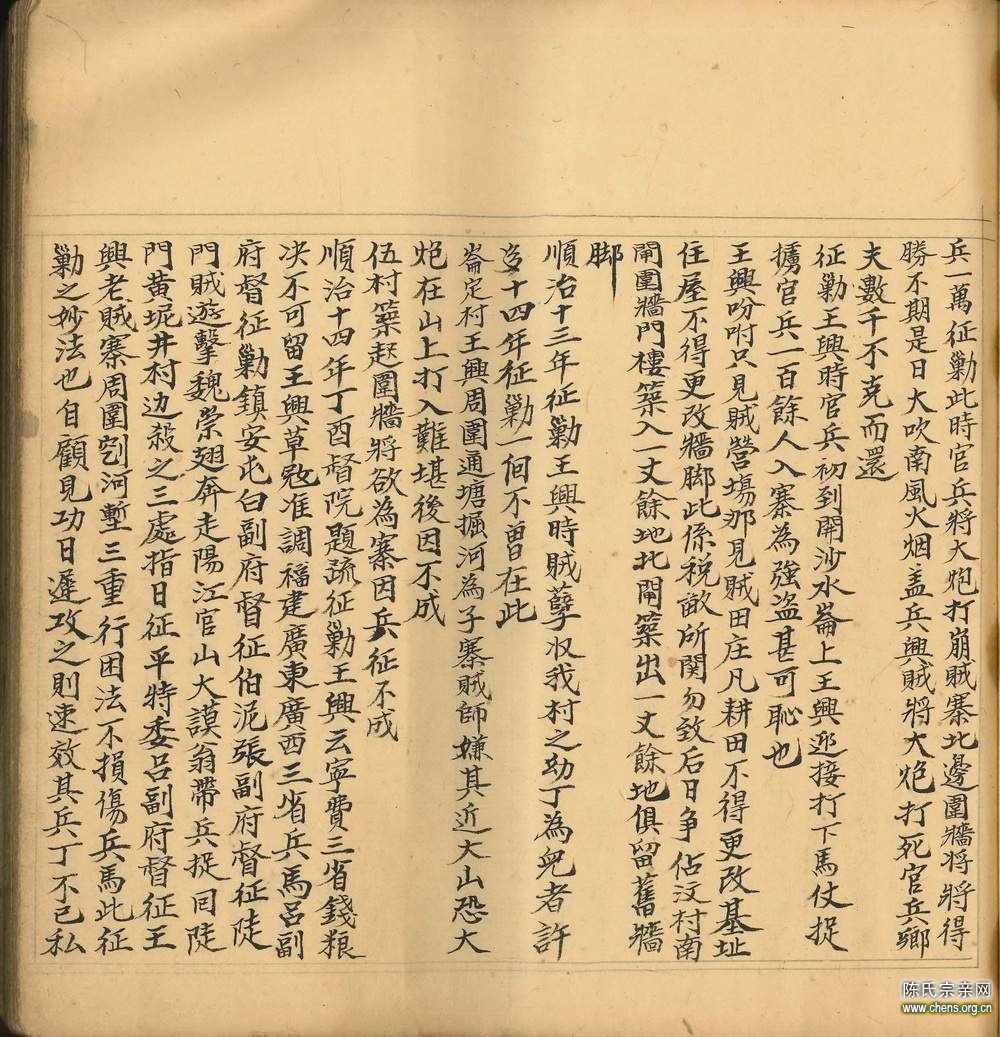 兵一萬征勦此時官兵將大炮打崩賊寨北邊圍牆将將得
勝不期是日大吹南風火烟盖兵興賊將大炮打死官兵鄉
夫數千不克而還
征勦王興時官兵初到開沙水崙上王興迎接打下馬仗捉
擄官兵一百餘人入寨為強盜甚可恥也
王興吩咐只見賊營塲那見賊田庄凡耕田不得更改基址
住屋不得更改牆脚此係税畝所関勿致后日争佔汶村南
閘圍牆門樓築入一丈餘地北閘築出一丈餘地俱留舊牆
脚
順治十三年征勦王興時賊孽収我村之幼丁為兒者許
多十四年征勦一個不曽在此
崙定村王興周圍通塘掘河為子寨賊師嫌其近大山恐大
炮在山上打入難堪後因不成
伍村築起圍牆將欲為寨因兵征不成
順治十四年丁酉督院題疏征勦王興云寜費三省錢粮
决不可留王興草敃准調福建廣東廣西三省兵馬呂副
府督征勦鎖安屯白副府督征伯泥張副府督征陡
門賊遊擊魏崇翅奔走陽江官山大謨翁帶兵捉囘陡
門黄坭井村边殺之三處指日征平特委呂副府督征王
興老賊寨周圍刳河塹三重行困法不損傷兵馬此征
勦之妙法也自顧見功日遲攻之則速效其兵丁不已私
陈氏宗亲网
www.chens.org.cn